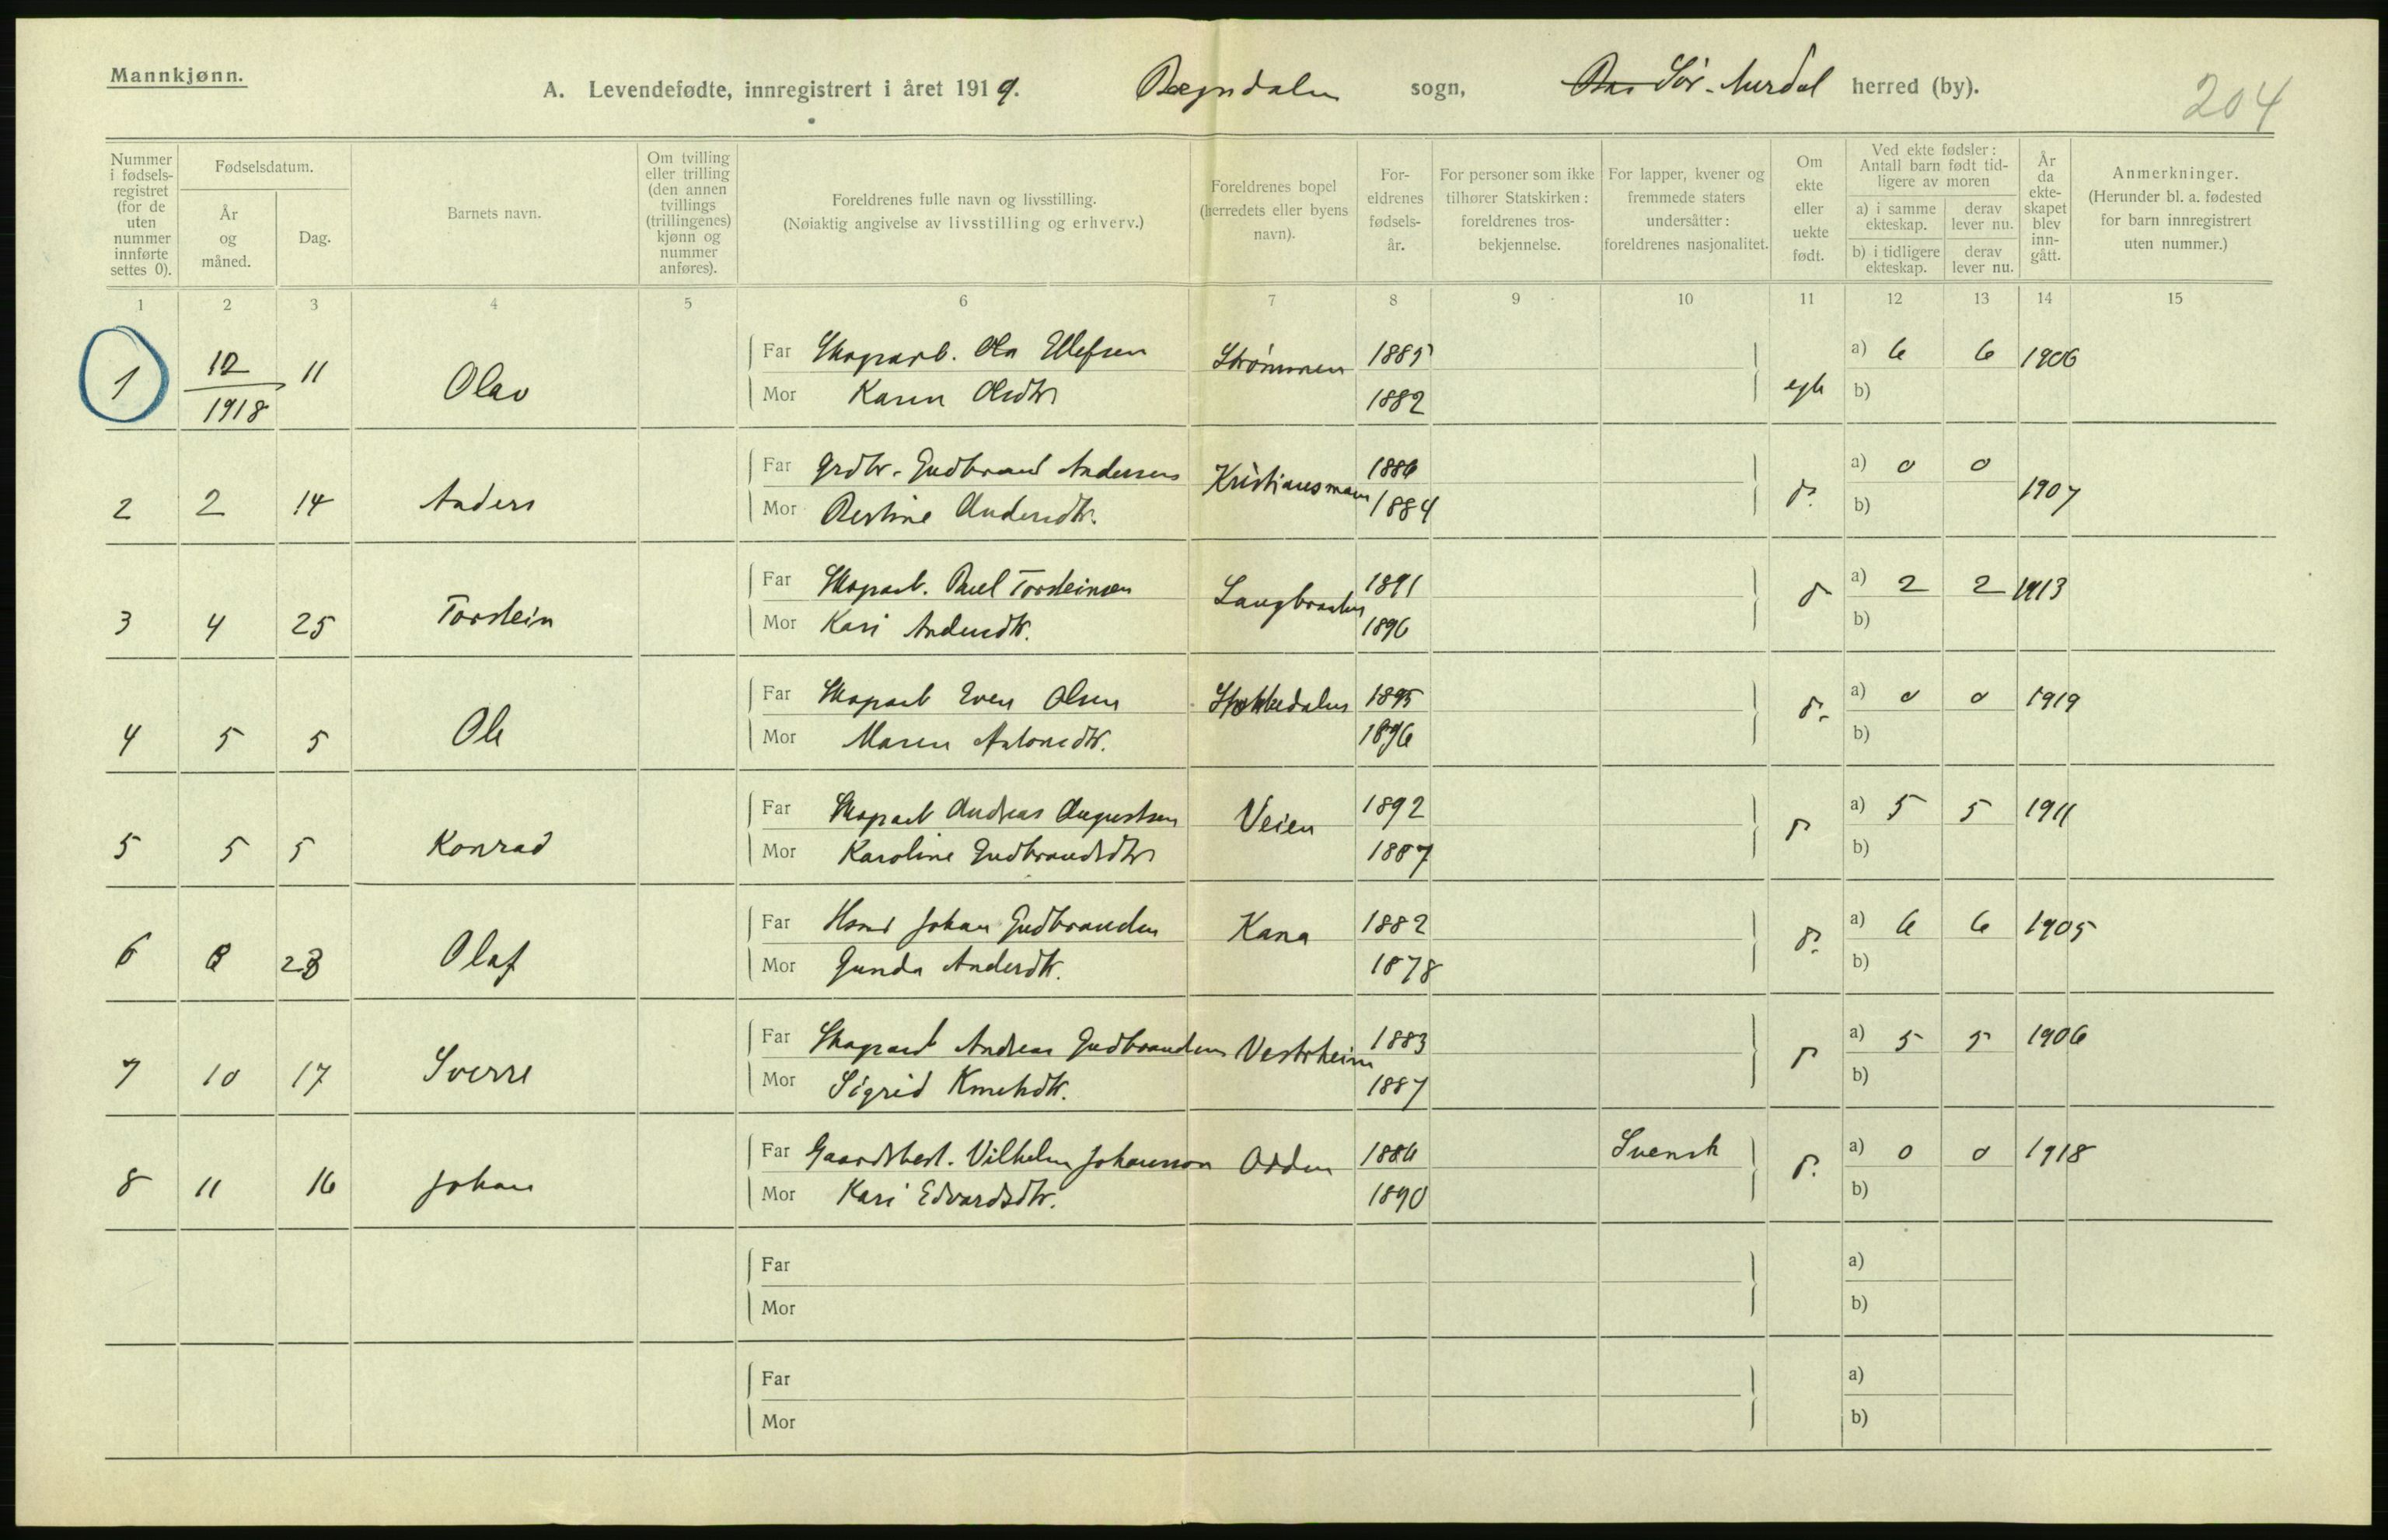 Mannkjønn.
A. Levendefødte, innregistrert i året 1919. Begndalen sogn, Sør-Aurdal herred (by).
204
Nummer i fødselsregistret (for de uten nummer innførte settes 0).
Fødselsdatum.
År og måned.
Dag.
Barnets navn.
Om tvilling eller trilling (den annen tvillings (trillingenes) kjønn og nummer anføres).
Foreldrenes fulle navn og livsstilling.
(Nøiaktig angivelse av livsstilling og erhverv.)
Foreldrenes bopel (herredets eller byens navn).
Foreldrenes fødselsår.
For personer som ikke tilhører Statskirken: foreldrenes trosbekjennelse.
For lapper, kvener og fremmede staters undersåtter: foreldrenes nasjonalitet.
Om ekte eller uekte født.
Ved ekte fødsler: Antall barn født tidligere av moren
a) i samme ekteskap.
derav lever nu.
b) i tidligere ekteskap.
derav lever nu.
År da ekteskapet blev inngått.
Anmerkninger.
(Herunder bl. a. fødested for barn innregistrert uten nummer.)
1 2 3 4 5 6 7 8 9 10 11 12 13 14 15
1 12/1918 11 Olav Far Skogarb. Ola Ellefsen Strømmen 1885 egte a) 6 6 1906
Mor Karen Olsdtr 1882 b)
2 2 14 Anders Far Grdbr. Gudbrand Andersen Kristiansmoen 1886 a) 0 0 1907
Mor Andersdtr. 1884 b)
3 4 25 Torstein Far Skogarb. Paul Torsteinsen Langbraaten 1891 a) 2 2 1913
Mor Kari Andersdtr. 1896 b)
4 5 5 Ole Far Skogarb Even Olsen 1895 a) 0 0 1919
Mor Maren Antonsdtr. 1896 b)
5 5 5 Konrad Far Skogarb Andreas Augustsen Veien 1892 a) 5 5 1911
Mor Karoline Gudbrandsdtr 1887 b)
6 23 Olaf Far Johan Gudbrandsen Kana 1882 a) 6 6 1905
Mor Gunda Andersdtr. 1878 b)
7 10 17 Sverre Far Skogarb Andreas Gudbrandsen Vestrheim 1883 a) 5 5 1906
Mor Sigrid Knutsdtr. 1887 b)
8 11 16 Johan Far Gaardsbest. Vilhelm Johansson Odden 1886 Svensk a) 0 0 1918
Mor Kari Edvardsdtr. 1890 b)
Far a)
Mor b)
Far a)
Mor b)